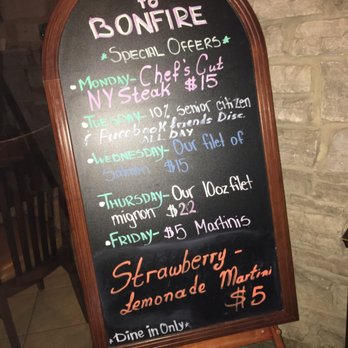 TO
BONFIRE
*SPECIAL OFFERS*
•MONDAY- Chef's Cut
NY Steak $15
•TUESDAY- 10% senior citizen
& Facebook friends Disc.
ALL DAY
•WEDNESDAY- Our filet of
Salmon $15
•THURSDAY- Our 10oz filet
mignon $22
•FRIDAY- $5 Martinis
Strawberry -
Lemonade Martini
$5
*Dine in Only*